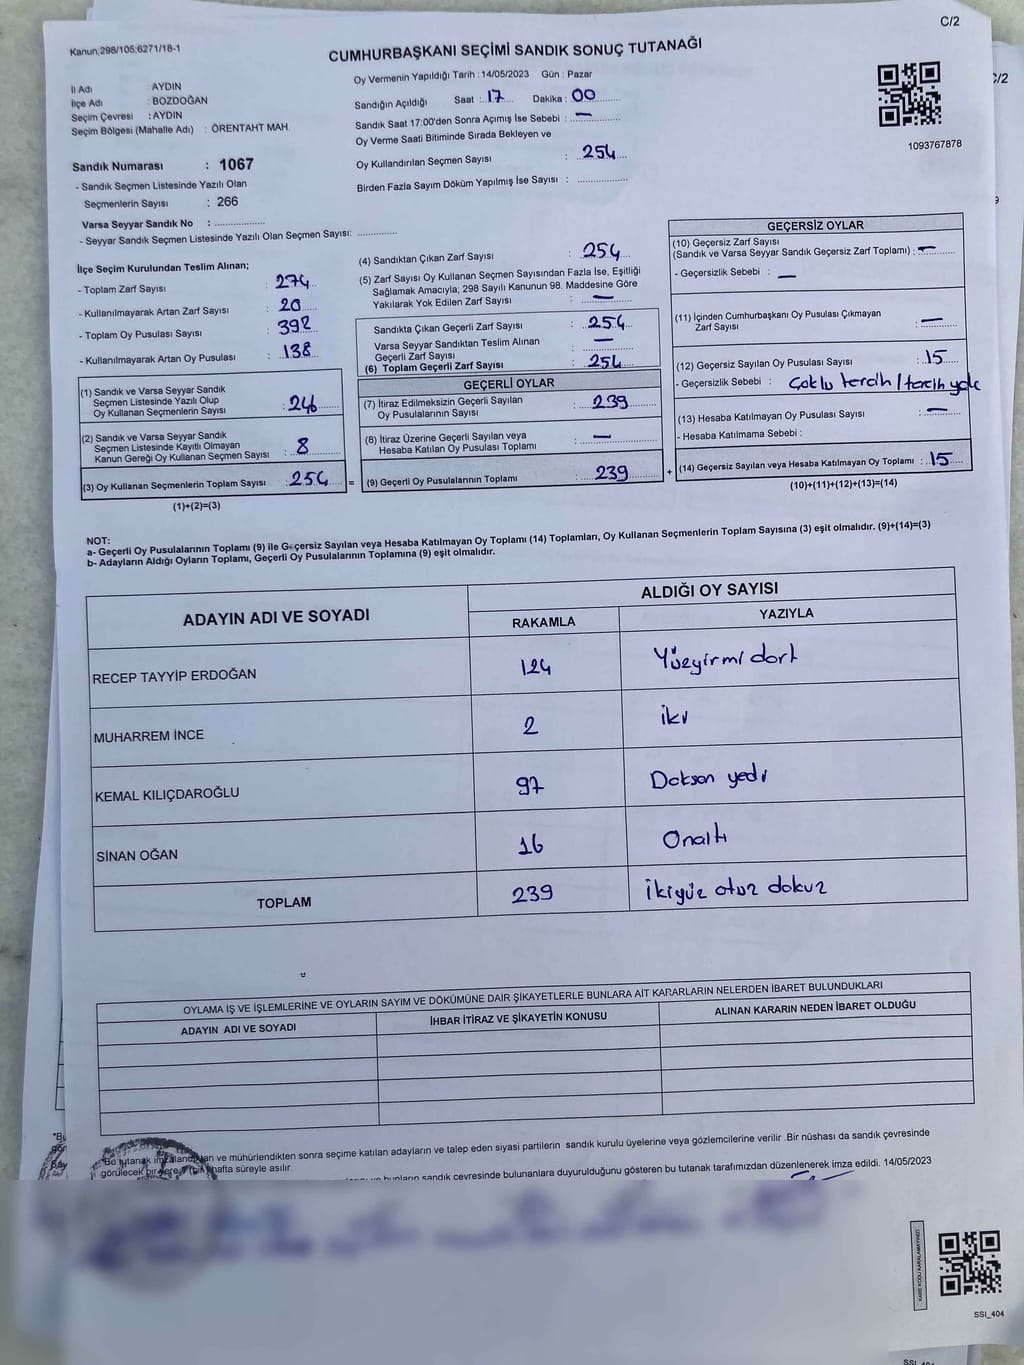 C/2
Kanun;298/105;6271/18-1
CUMHURBAŞKANI SEÇİMİ SANDIK SONUÇ TUTANAĞI
İl Adı AYDIN
İlçe Adı : BOZDOĞAN
Seçim Çevresi : AYDIN
Seçim Bölgesi (Mahalle Adı) : ÖRENTAHT MAH.
Oy Vermenin Yapıldığı Tarih : 14/05/2023 Gün : Pazar
Sandığın Açıldığı Saat : 17 Dakika : 00
Sandık Saat 17:00'den Sonra Açımış İse Sebebi : —
Oy Verme Saati Bitiminde Sırada Bekleyen ve
Oy Kullandırılan Seçmen Sayısı : 254
Birden Fazla Sayım Döküm Yapılmış İse Sayısı :
1093767878
Sandık Numarası : 1067
- Sandık Seçmen Listesinde Yazılı Olan
Seçmenlerin Sayısı : 266
Varsa Seyyar Sandık No :
- Seyyar Sandık Seçmen Listesinde Yazılı Olan Seçmen Sayısı:
İlçe Seçim Kurulundan Teslim Alınan;
- Toplam Zarf Sayısı : 274
- Kullanılmayarak Artan Zarf Sayısı : 20
- Toplam Oy Pusulası Sayısı : 392
- Kullanılmayarak Artan Oy Pusulası : 138
(1) Sandık ve Varsa Seyyar Sandık
Seçmen Listesinde Yazılı Olup
Oy Kullanan Seçmenlerin Sayısı : 246
(2) Sandık ve Varsa Seyyar Sandık
Seçmen Listesinde Kayıtlı Olmayan
Kanun Gereği Oy Kullanan Seçmen Sayısı : 8
(3) Oy Kullanan Seçmenlerin Toplam Sayısı : 254 =
(1)+(2)=(3)
(4) Sandıktan Çıkan Zarf Sayısı : 254
(5) Zarf Sayısı Oy Kullanan Seçmen Sayısından Fazla İse, Eşitliği
Sağlamak Amacıyla; 298 Sayılı Kanunun 98. Maddesine Göre
Yakılarak Yok Edilen Zarf Sayısı : —
Sandıkta Çıkan Geçerli Zarf Sayısı : 254
Varsa Seyyar Sandıktan Teslim Alınan
Geçerli Zarf Sayısı : —
(6) Toplam Geçerli Zarf Sayısı : 254
GEÇERLİ OYLAR
(7) İtiraz Edilmeksizin Geçerli Sayılan
Oy Pusulalarının Sayısı : 239
(8) İtiraz Üzerine Geçerli Sayılan veya
Hesaba Katılan Oy Pusulası Toplamı : —
(9) Geçerli Oy Pusulalarının Toplamı : 239 +
GEÇERSİZ OYLAR
(10) Geçersiz Zarf Sayısı
(Sandık ve Varsa Seyyar Sandık Geçersiz Zarf Toplamı) : —
- Geçersizlik Sebebi : —
(11) İçinden Cumhurbaşkanı Oy Pusulası Çıkmayan
Zarf Sayısı : —
(12) Geçersiz Sayılan Oy Pusulası Sayısı : 15
- Geçersizlik Sebebi : Çoklu tercih / tercih yok
(13) Hesaba Katılmayan Oy Pusulası Sayısı : —
- Hesaba Katılmama Sebebi :
(14) Geçersiz Sayılan veya Hesaba Katılmayan Oy Toplamı : 15
(10)+(11)+(12)+(13)=(14)
NOT:
a- Geçerli Oy Pusulalarının Toplamı (9) ile Geçersiz Sayılan veya Hesaba Katılmayan Oy Toplamı (14) Toplamları, Oy Kullanan Seçmenlerin Toplam Sayısına (3) eşit olmalıdır. (9)+(14)=(3)
b- Adayların Aldığı Oyların Toplamı, Geçerli Oy Pusulalarının Toplamına (9) eşit olmalıdır.
ADAYIN ADI VE SOYADI ALDIĞI OY SAYISI
RAKAMLA YAZIYLA
RECEP TAYYİP ERDOĞAN 124 Yüzyirmi dört
MUHARREM İNCE 2 iki
KEMAL KILIÇDAROĞLU 97 Doksan yedi
SİNAN OĞAN 16 Onaltı
TOPLAM 239 İkiyüz otuz dokuz
OYLAMA İŞ VE İŞLEMLERİNE VE OYLARIN SAYIM VE DÖKÜMÜNE DAİR ŞİKAYETLERLE BUNLARA AİT KARARLARIN NELERDEN İBARET BULUNDUKLARI
ADAYIN ADI VE SOYADI İHBAR İTİRAZ VE ŞİKAYETİN KONUSU ALINAN KARARIN NEDEN İBARET OLDUĞU
Bu tutanak imzalandıktan ve mühürlendikten sonra seçime katılan adayların ve talep eden siyasi partilerin sandık kurulu üyelerine veya gözlemcilerine verilir .Bir nüshası da sandık çevresinde
görülecek bir yere hafta süreyle asılır.
bunların sandık çevresinde bulunanlara duyurulduğunu gösteren bu tutanak tarafımızdan düzenlenerek imza edildi. 14/05/2023
KARE KODU KARALAMAYINIZ!
SSI_404